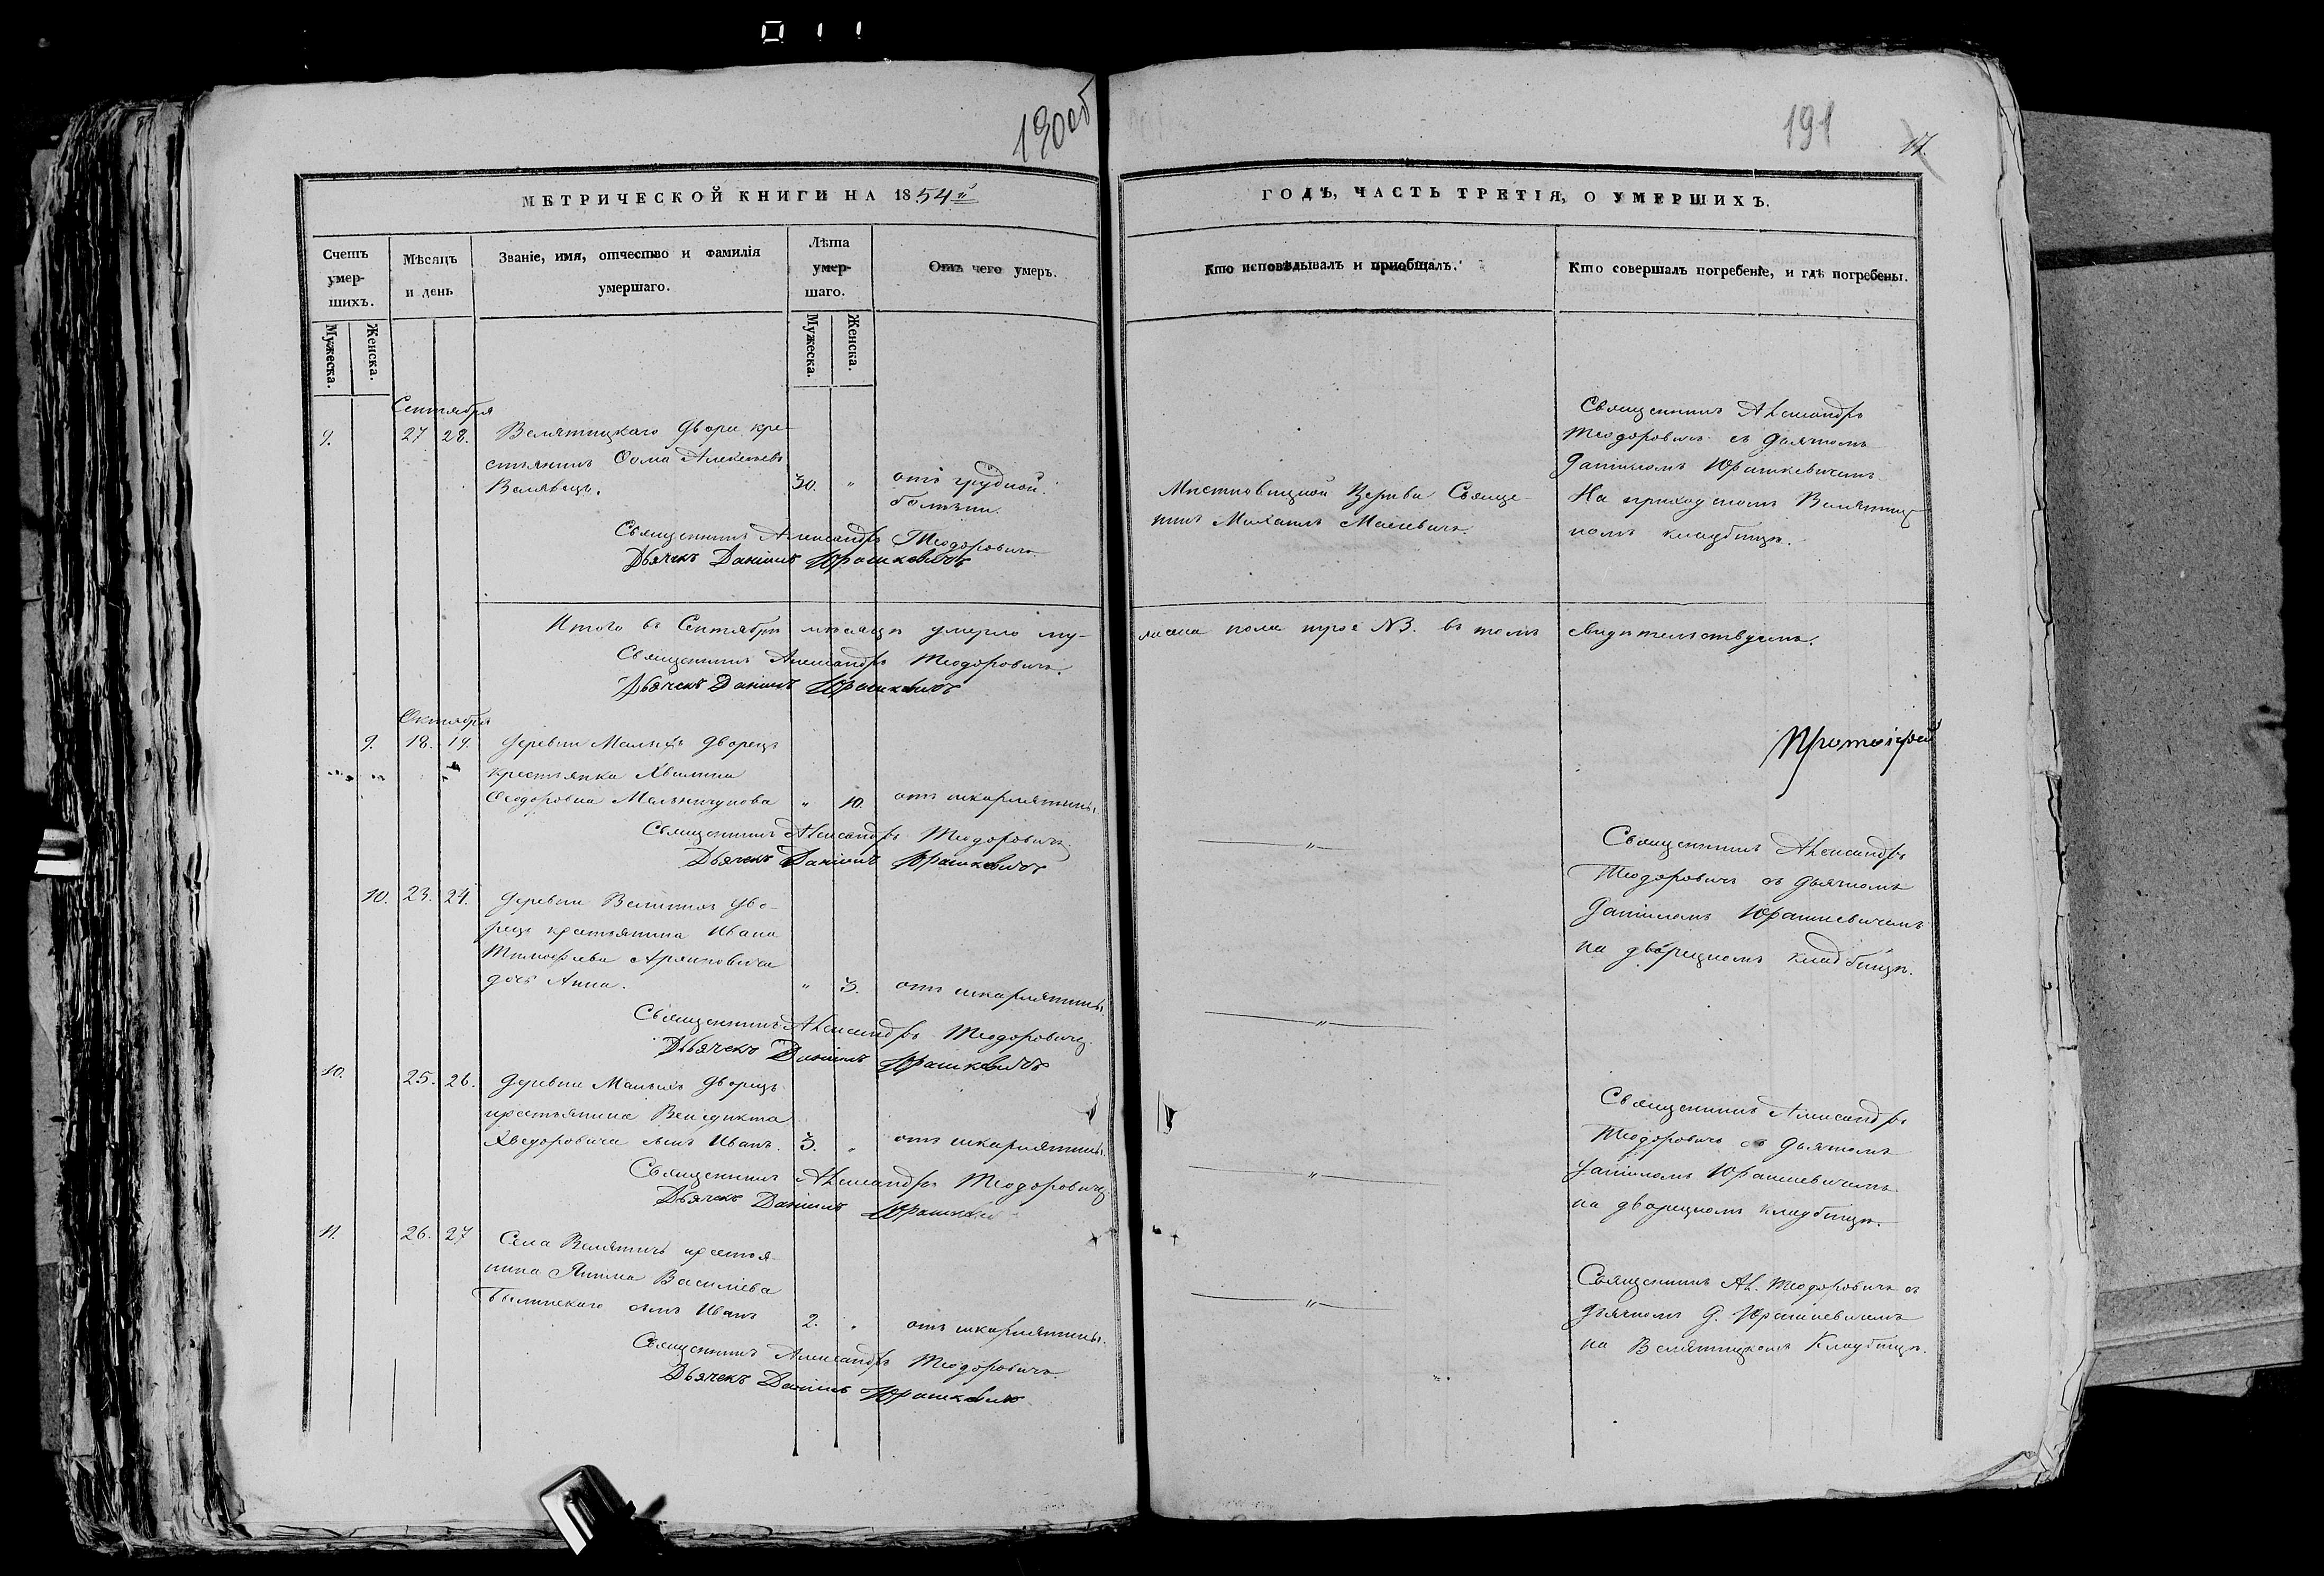 190об
МЕТРИЧЕСКОЙ КНИГИ НА 1854й
Счетъ умершихъ.
Мѣсяцъ и день
Званіе, имя, отчество и фамилія умершаго.
Лѣта умершаго.
Отъ чего умеръ.
Мужеска.
Женска.
Мужеска.
Женска.
Сентября
9. 27 28. Велятицкаго Двора кре-
стьянинъ Ѳома Алексѣевъ
30. " отъ грудной
болѣзни.
Священникъ Александръ Теодоровичъ
Дьячекъ Даніилъ Юрашкевичъ
Итого въ Сентябрѣ мѣсяцѣ умерло му-
Священникъ Александръ Теодоровичъ.
Дьячекъ Даніилъ Юрашкевичъ
Октября
9. 18. 19. Деревни Малыхъ Дворецъ
крестьянка
Ѳеодоровна Мельничукова " 10. отъ шкарлятины.
Священникъ Александръ Теодоровичъ.
Дьячекъ Даніилъ Юрашкевичъ
10. 23. 24. Деревни Великихъ Дво-
рецъ крестьянина Ивана
Тимофеева
дочь Анна. " 3. отъ шкарлятины.
Священникъ Александръ Теодоровичъ.
Дьячекъ Даніилъ Юрашкевичъ
10. 25. 26. Деревни Малыхъ Дворецъ
крестьянина Венедикта
Хведоровича сынъ Иванъ. 3. " отъ шкарлятины.
Священникъ Александръ Теодоровичъ
Дьячекъ Даніилъ Юрашкевичъ
11. 26. 27 Села Велятичъ крестья-
нина Якима Василіева
сынъ Иванъ 2. " отъ шкарлятины.
Священникъ Александръ Теодоровичъ.
Дьячекъ Даніилъ Юрашкевичъ
191
17.
ГОДЪ, ЧАСТЬ ТРЕТІЯ, О УМЕРШИХЪ.
Кто исповѣдывалъ и пріобщалъ.
Кто совершалъ погребеніе, и гдѣ погребены.
Церкви Священ-
никъ Михаилъ
Священникъ Александръ
Теодоровичъ съ дьячкомъ
Даніиломъ Юрашкевичемъ
На приходскомъ Велятиц-
комъ кладбищѣ.
жеска пола трое №3. въ томъ свидѣтельствуемъ.
Протоіерей
"
Священникъ Александръ
Теодоровичъ съ дьячкомъ
Даніиломъ Юрашкевичемъ
на дворецкомъ кладбищѣ.
"
Священникъ Александръ
Теодоровичъ съ дьячкомъ
Даніиломъ Юрашкевичемъ
на дворецкомъ кладбищѣ.
"
Священникъ Ал. Теодоровичъ съ
дьячкомъ Д. Юрашкевичемъ
на Велятицкомъ Кладбищѣ.
"